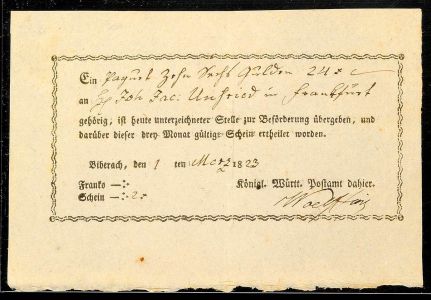 Ein Paquet Zehn Sechs Gulden 24 x
an Hr Joh Jac: Unfried in Frankfurt
gehörig, ist heute unterzeichneter Stelle zur Beförderung übergeben, und
darüber dieser drey Monat gültige Schein ertheilet worden.
Biberach, den 1 ten Merz 1823
Franko —:- Königl. Württ. Postamt dahier.
Schein —:2x